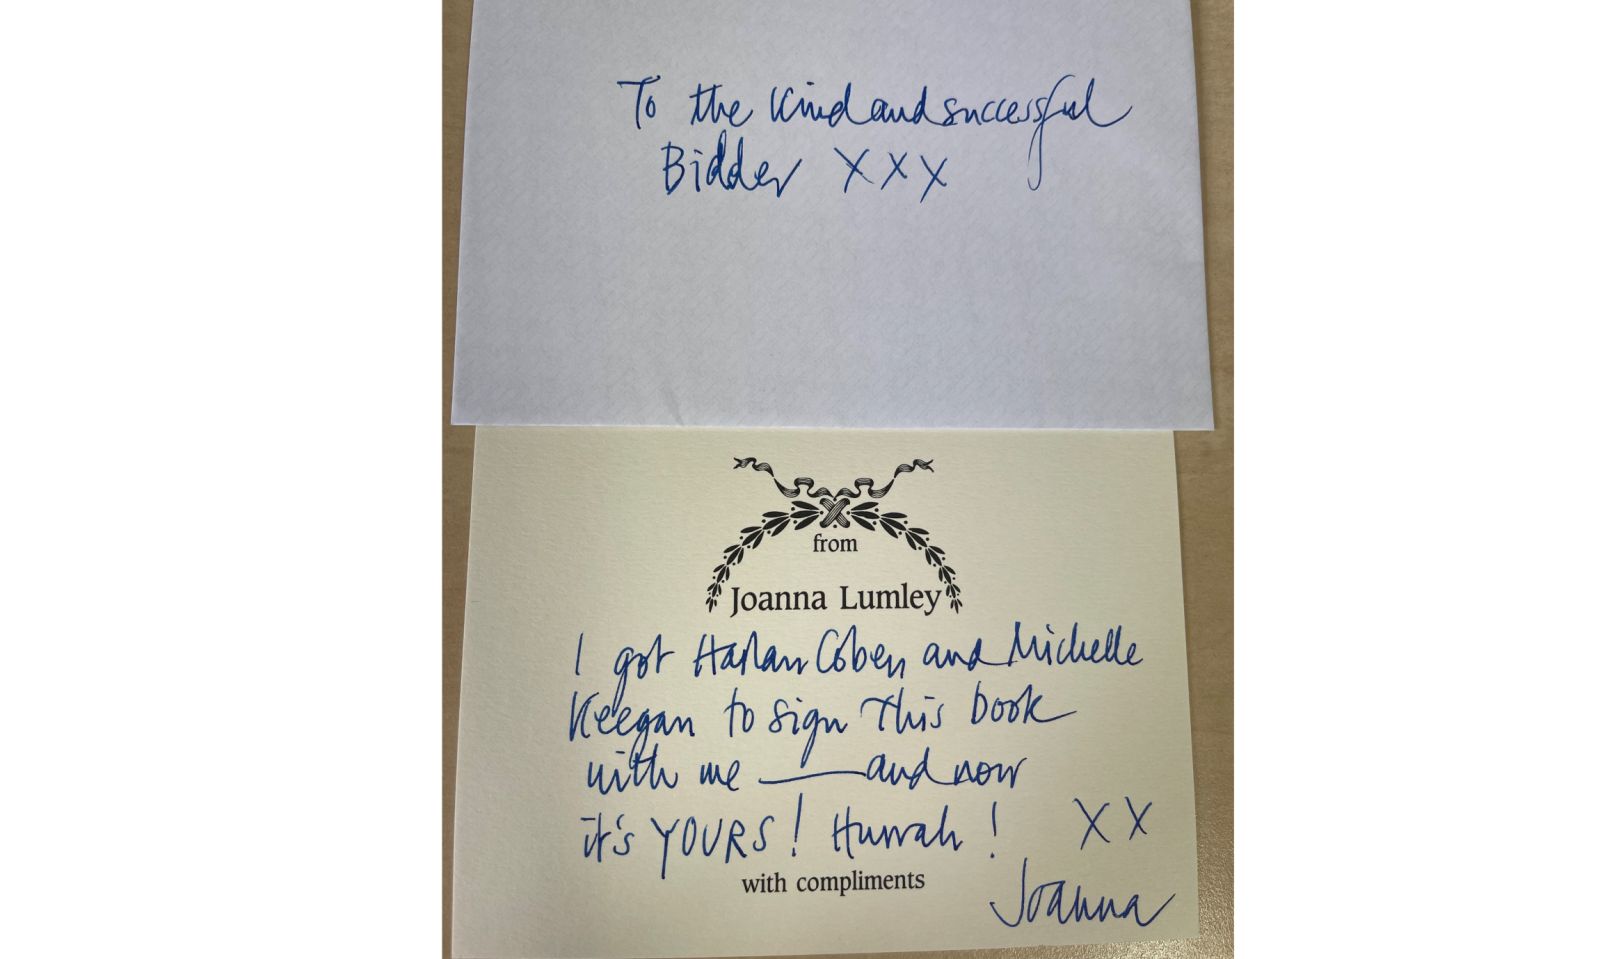 To the kind and successful
Bidder XXX
from
Joanna Lumley
I got Harlan Coben and Michelle
Keegan to sign this book
with me — and now
it's YOURS! Hurrah! XX
with compliments
Joanna